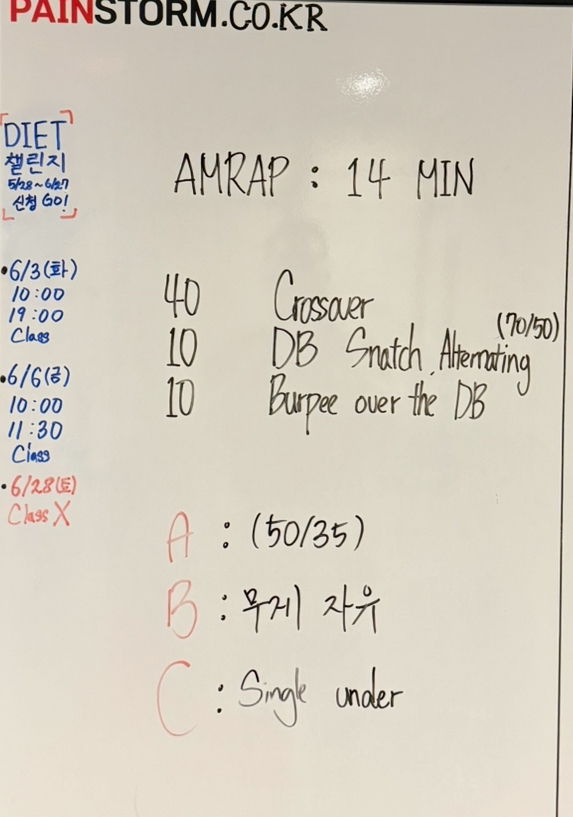 PAINSTORM.CO.KR
DIET
챌린지
5/28~6/27
신청 GO!
•6/3(화)
10:00
19:00
Class
•6/6(금)
10:00
11:30
Class
•6/28(토)
Class X
AMRAP : 14 MIN
40 Crossover
10 DB Snatch, Alternating (70/50)
10 Burpee over the DB
A : (50/35)
B : 무게 자유
C : Single under